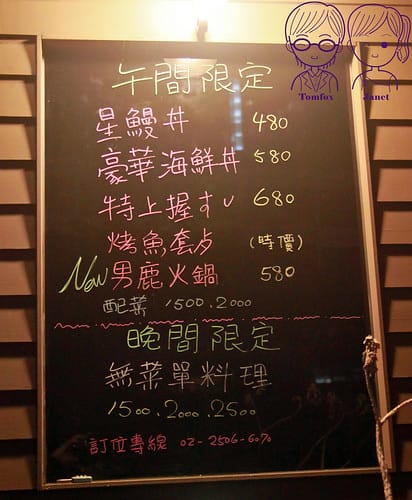 Tomfox
Janet
午間限定
星鰻丼 480
豪華海鮮丼 580
特上握すし 680
烤魚套歺 (時價)
New 男鹿火鍋 580
配菜 1500.2000
晚間限定
無菜單料理
1500.2000.2500
訂位專線 02-2506-6070